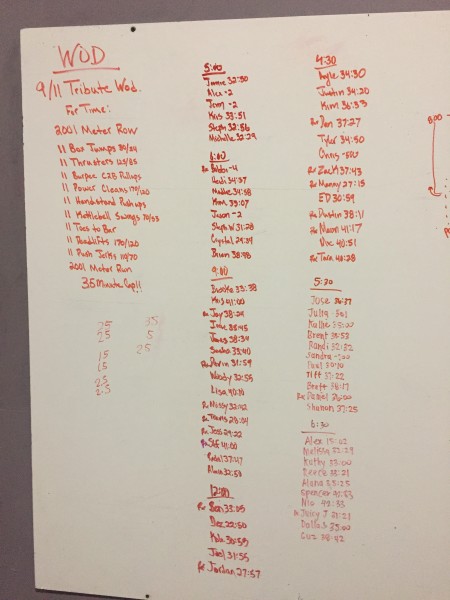 WOD
9/11 Tribute Wod.
For Time:
2001 Meter Row
11 Box Jumps 30/24
11 Thrusters 125/85
11 Burpee C2B Pullups
11 Power Cleans 170/120
11 Handstand Pushups
11 Kettlebell Swings
11 Toes to Bar
11 Deadlifts 170/120
11 Push Jerks 110/70
2001 Meter Run
35 Minute Cap!!
25 35
25 5
25
15
15
25
2.5
5:00
Jamie 32:30
Alex -2
Jenn -2
Kris 33:51
Steph 32:56
Michelle 32:29
6:00
Rx Bobbi -4
Heidi 34:37
34:58
Kim 33:07
Jason -2
Steph W 31:28
Crystal 29:34
Brian 38:48
9:00
Brooke 33:38
Kris 41:00
Rx Joy 38:24
38:34
33:40
31:59
Woody 32:55
Lisa 40:10
Rx Missy 32:12
Rx Travis 28:04
Rx Jess 29:22
Rx 41:00
37:47
32:58
12:00
Rx Ben 33:05
Dee 22:50
Kyle 30:59
Joel 31:55
Rx Jordan 27:57
4:30
Kyle 34:30
Justin 34:20
Kim 36:33
Rx Jen 37:27
Tyler 34:50
Chris
Rx Zack 37:43
Rx Manny 27:15
ED 30:59
Rx Dustin 38:11
Rx Naomi 41:17
Vic 40:51
Rx Tara 40:28
5:30
Jose
Julia
Kallie 35:00
Brent
Randi 32:32
Sandra
Paul 30:30
Tiff 37:22
Brett 38:17
Rx Daniel
Shanon 37:25
6:30
Alex
Melissa 32:29
Kathy 33:00
33:21
Alana 35:25
Spencer
Nic
Rx Juicy J
Dallas 35:00
Guz 38:42
8:00